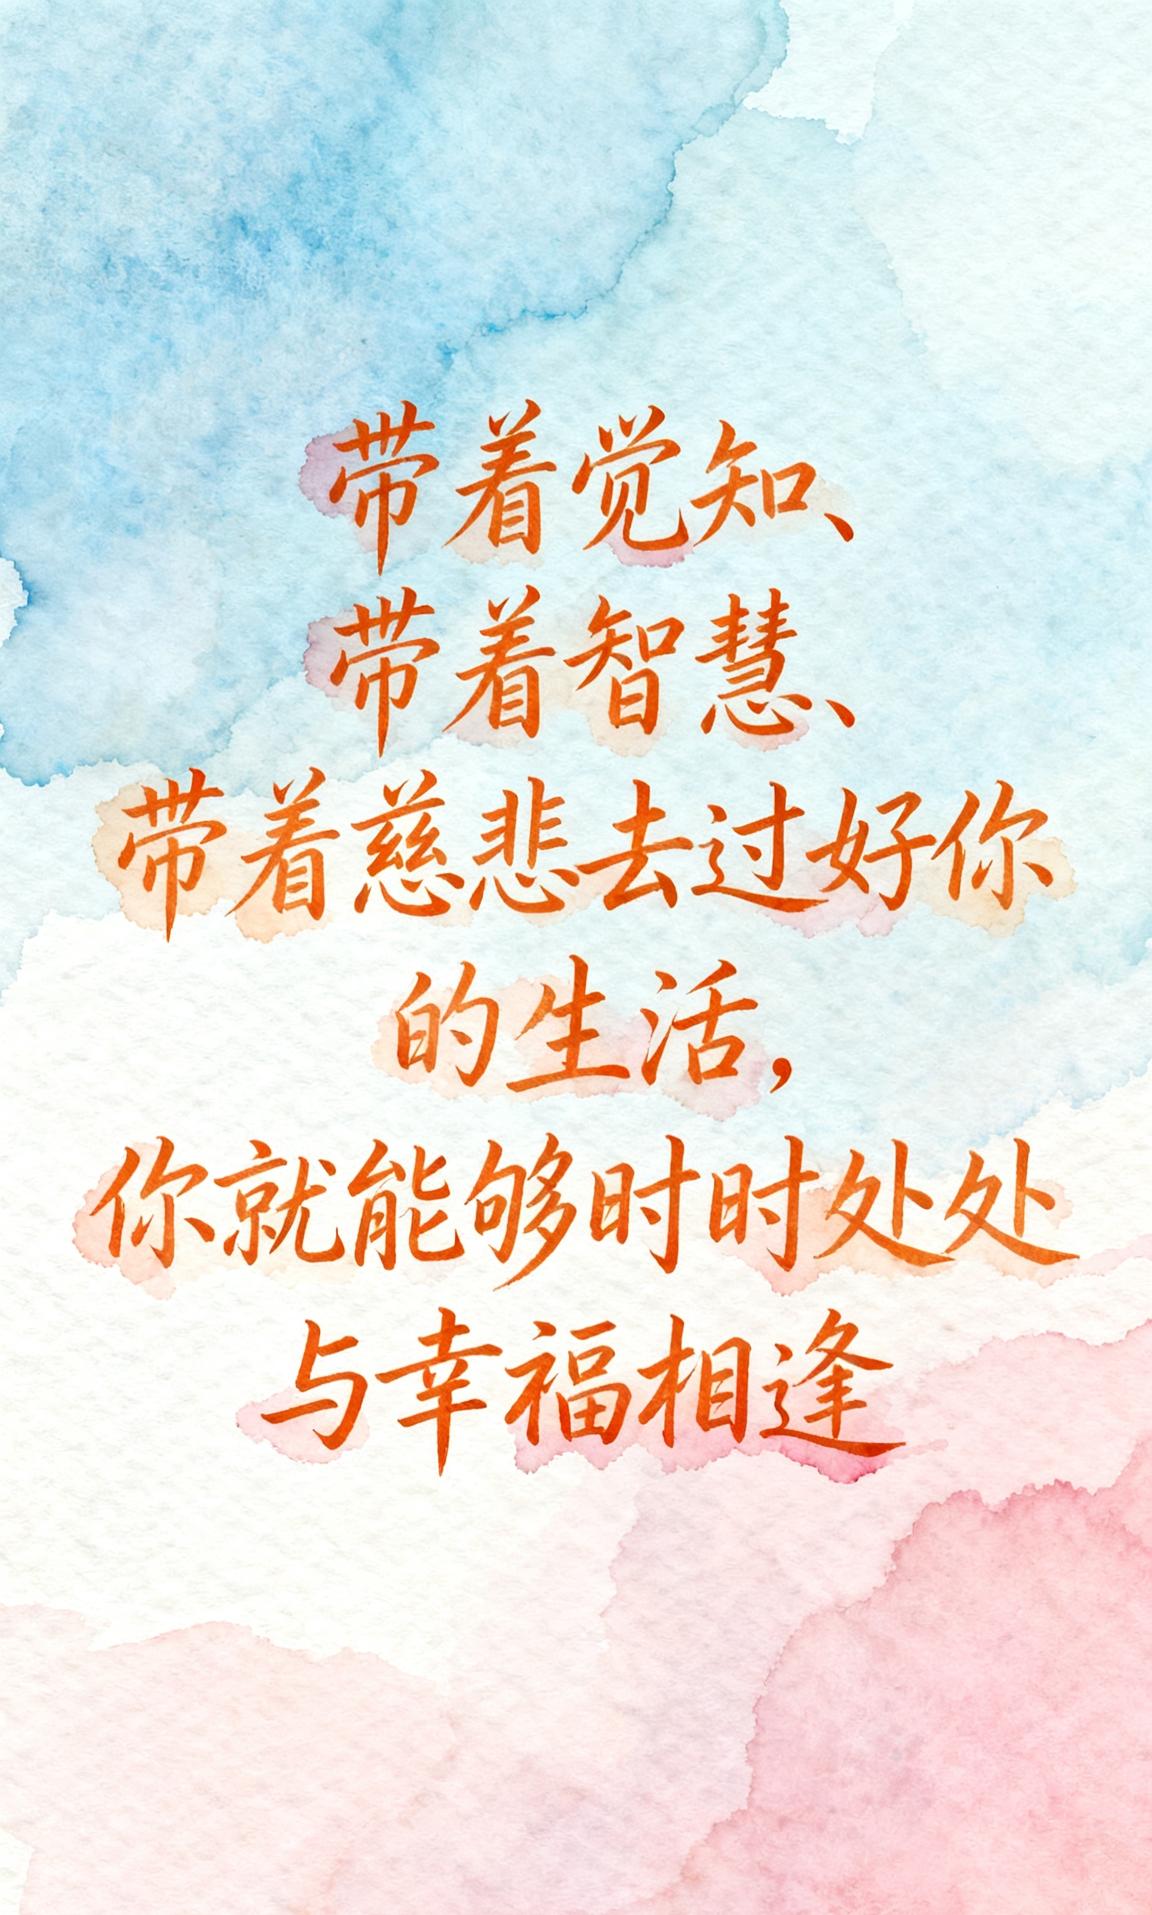 带着觉知、
带着智慧、
带着慈悲去过好你
的生活，
你就能够时时处处
与幸福相逢